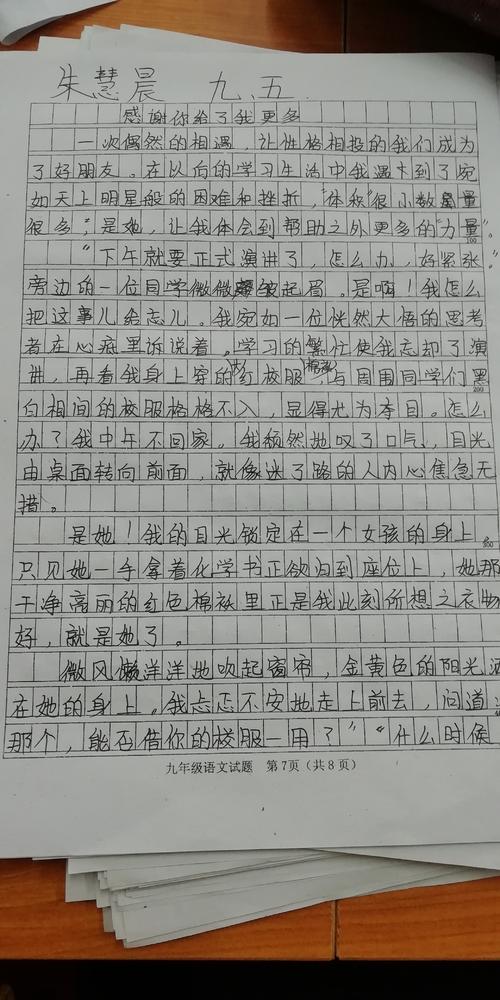 朱慧晨 九.五.
感谢你给了我更多
一次偶然的相遇，让性格相投的我们成为
了好朋友。在以后的学习生活中我遇上到了宛
如天上明星般的困难和挫折，"体积"很小数量
很多；是她，让我体会到帮助之外更多的"力量"。
100
"下午就要正式演讲了，怎么办，好紧张。"
旁边的一位同学微微皱起眉。是啊！我怎么
把这事儿给忘儿。我宛如一位恍然大悟的思考
者在心底里诉说着。学习的繁忙使我忘却了演
讲，再看我身上穿的大红校服棉袄，与周围同学们黑
200
白相间的校服格格不入，显得尤为夺目。怎么
办？我中午不回家。我颓然地叹了口气，目光
由桌面转向前面，就像迷了路的人内心焦急无
措。
是她！我的目光锁定在一个女孩的身上。
300
只见她一手拿着化学书正欲归到座位上，她那
干净亮丽的红色棉袄里正是我此刻所想之衣物
好，就是她了。
微风懒洋洋地吹起窗帘，金黄色的阳光洒
在她的身上。我忐忑不安地走上前去，问道：
那个，能否借你的校服一用？""什么时候
九年级语文试题 第7页（共8页）